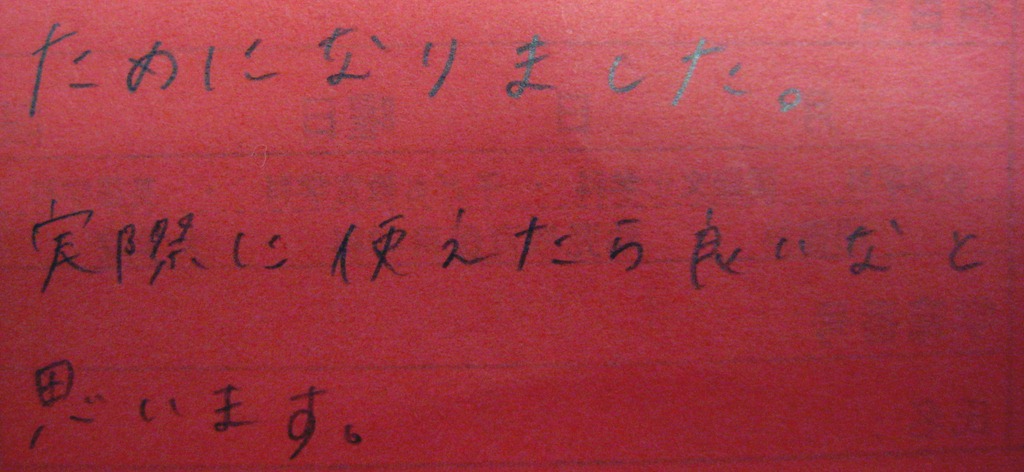 ためになりました。
実際に使えたら良いなと
思います。